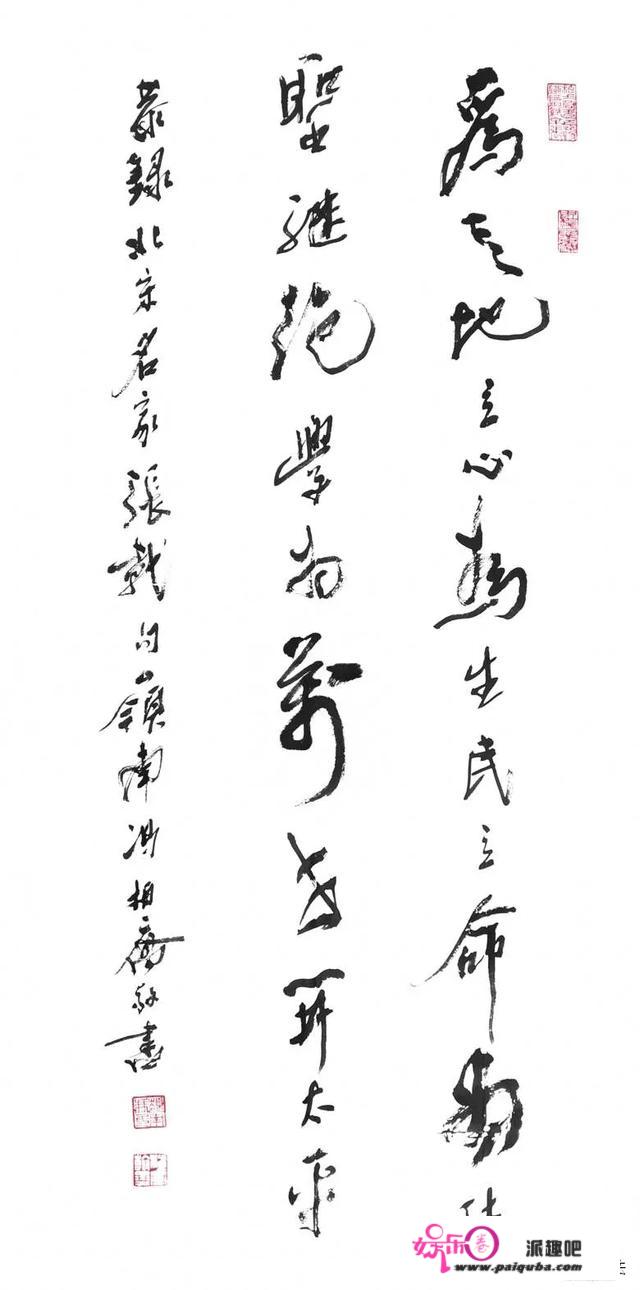 為天地立心為生民立命為往
聖繼絕學為萬世開太平
恭錄北宋名家張載句嶺南馮相敬書
娱乐圈 派趣吧
www.paiquba.com